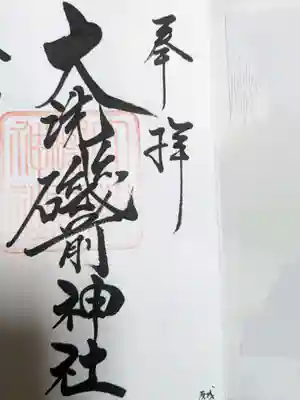 奉拝
大洗磯前神社